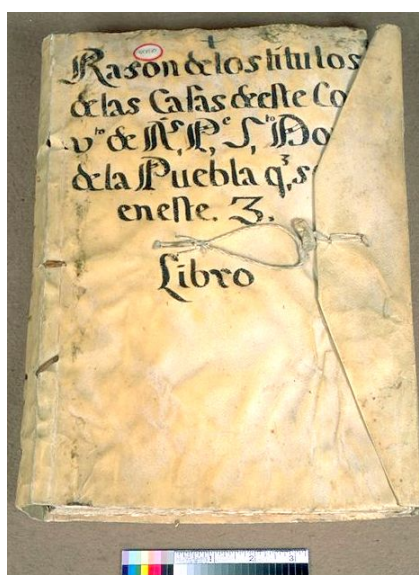 Rason de los titulos
de las Casas de este Co
vto de N, P, S, Do
de la Puebla q, s
en este. 3.
Libro
1 2 3